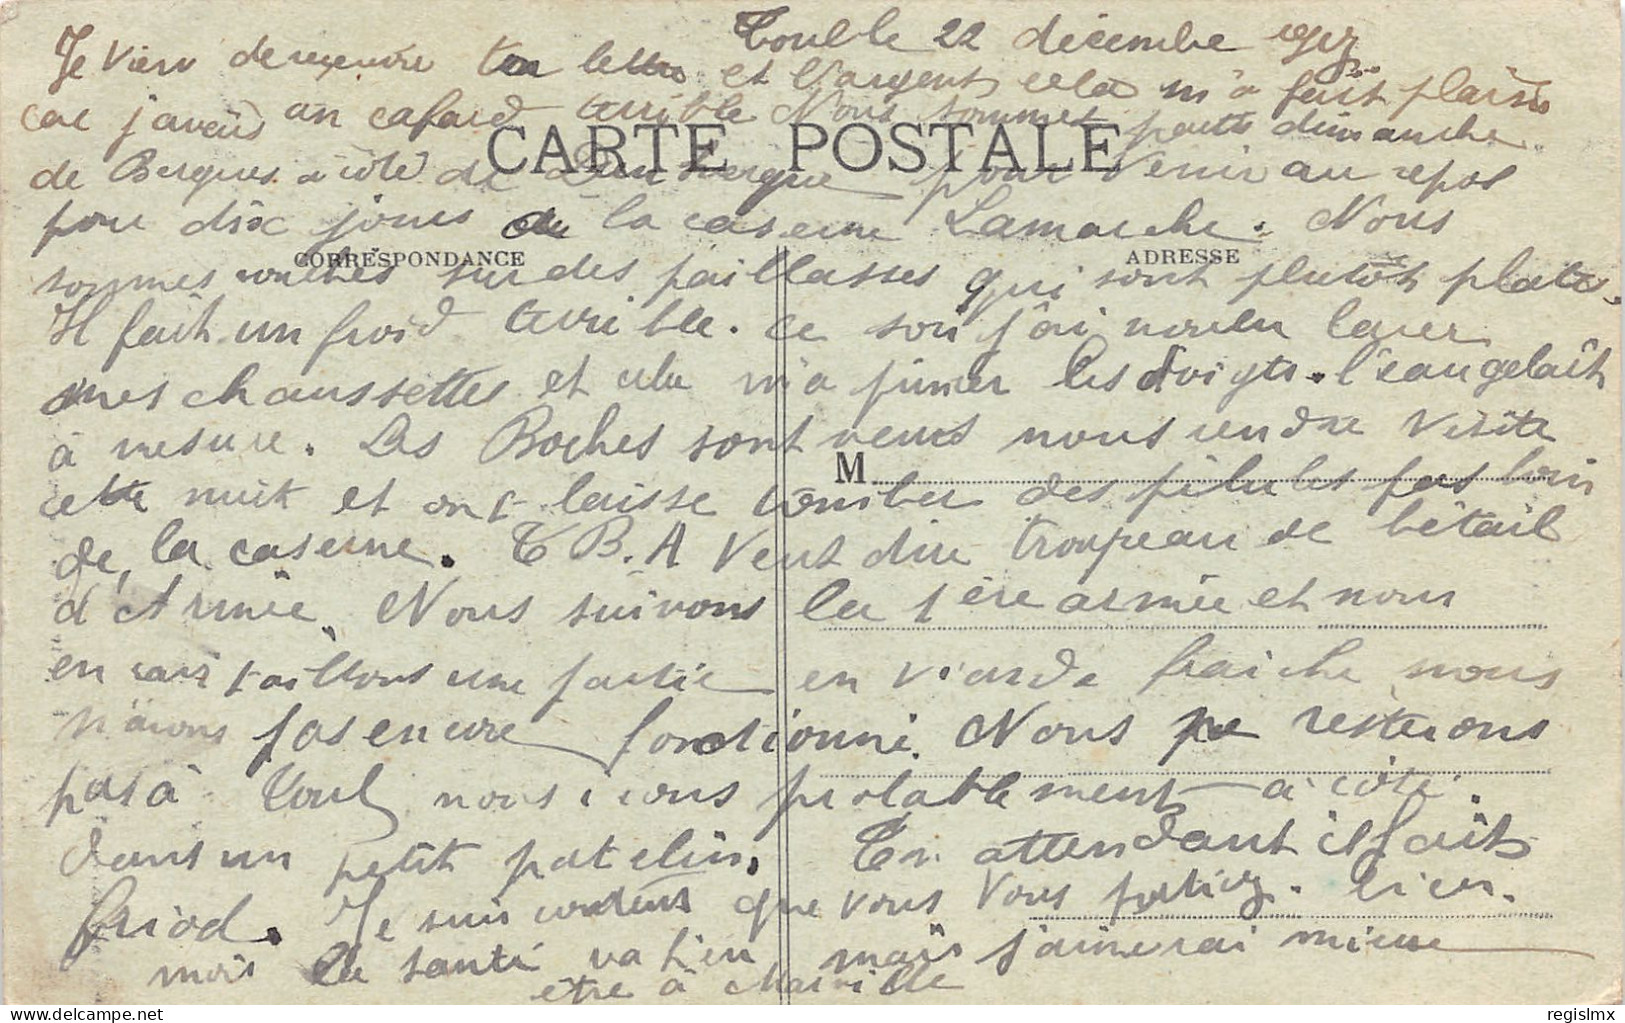 Toul le 22 décembre 1917
Je vien de recevoir ta lettre et l'argent cela m'a fait plaisir
car j'avais un cafard terrible Nous sommes partis dimanche
CARTE POSTALE
de Bergues à côté de Dunkerque pour venir au repos
pour dix jours de la caserne Lamarche. Nous
CORRESPONDANCE
ADRESSE
sommes couchés sur des paillasses qui sont plutôt plates.
Il fait un froid terrible. Ce soir j'ai voulu laver
mes chaussettes et cela m'a gimer les doigts. l'eau gelait
à mesure. Les Boches sont venus nous rendre visite
M
cette nuit et ont laisse tomber des pilules pas loin
de la caserne. T B. A veut dire troupeau de bétail
d'Armée. Nous suivons la 1ère armée et nous
en ravitaillons une partie en viande fraiche nous
n'avons pas encore fonctionné. Nous ne resterons
pas à Toul nous irons probablement à côté.
dans un petit patelin. En attendant il fait
friod. Je suis content que vous vous portiez. bien.
mois la santé va bien mais j'aimerai mieux
être à Mainville
regislmx